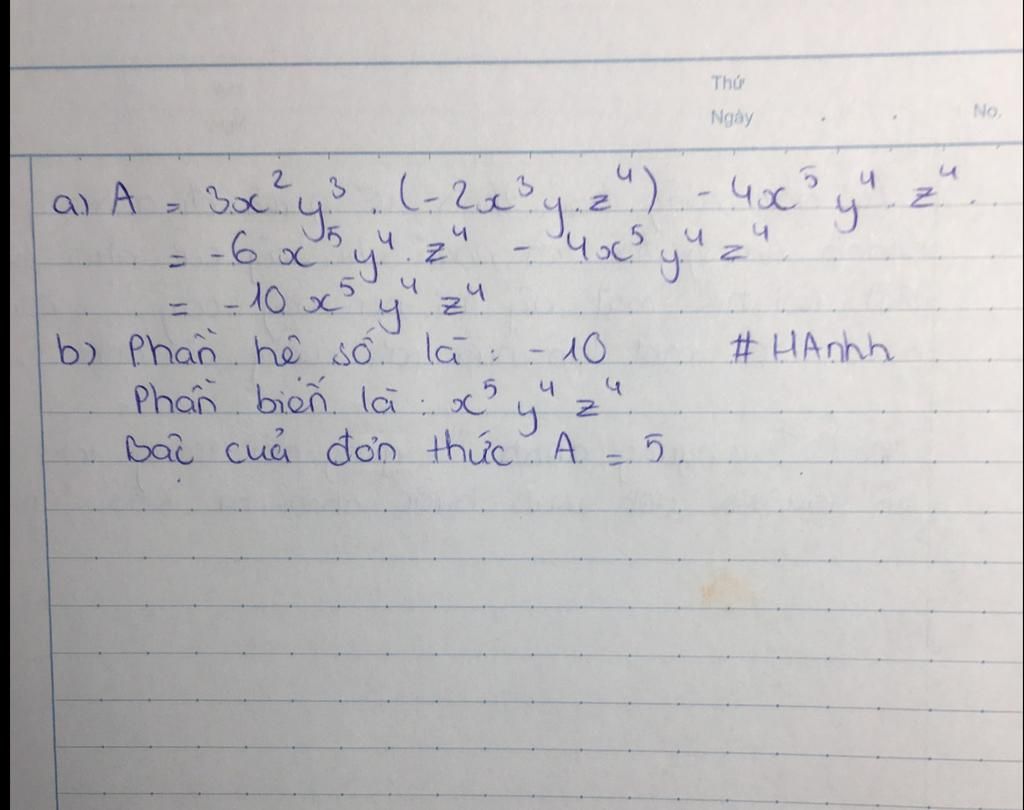 Thứ
Ngày . . No.
a) A = 3x² y³ . (-2x³ y z⁴) - 4x⁵ y⁴ z⁴
= -6 x⁵ y⁴ z⁴ - 4x⁵ y⁴ z⁴
= -10 x⁵ y⁴ z⁴
b) Phần hệ số là : -10 # HAnhh
Phần biến là : x⁵ y⁴ z⁴
Bậc cuả đơn thức A = 5